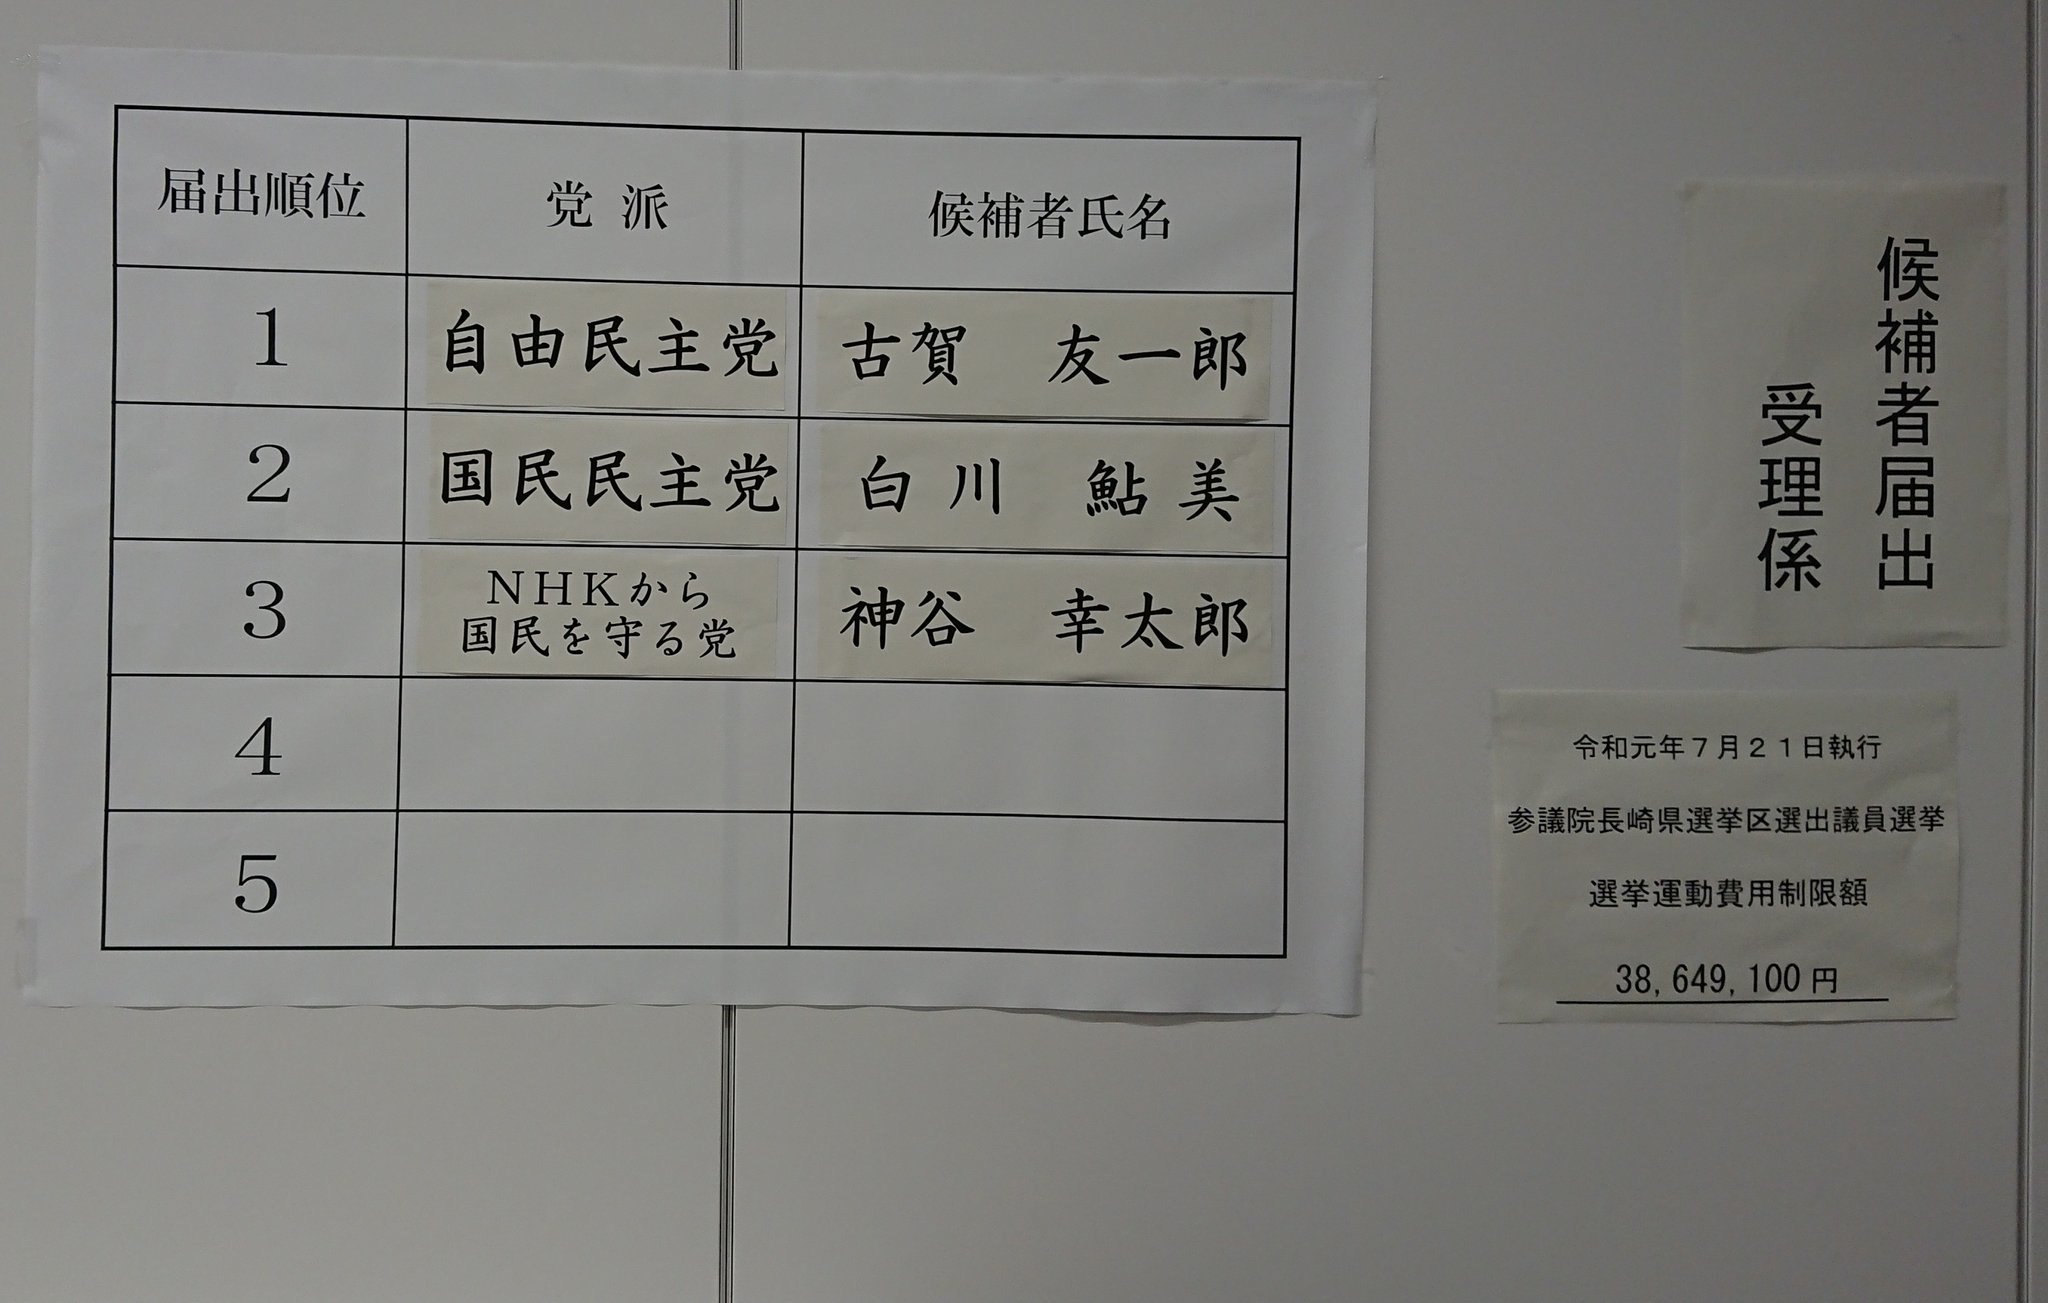 届出順位 党派 候補者氏名
1 自由民主党 古賀 友一郎
2 国民民主党 白川 鮎美
3 NHKから
国民を守る党 神谷 幸太郎
4
5
候補者届出
受理係
令和元年7月21日執行
参議院長崎県選挙区選出議員選挙
選挙運動費用制限額
38,649,100円